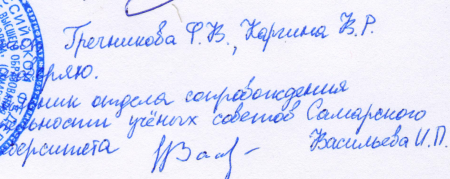 Гречникова Ф.В., Каргина В.Р.
ряю.
ник отдела сопровождения
льности учёных советов Самарского
верситета Васильева И.П.